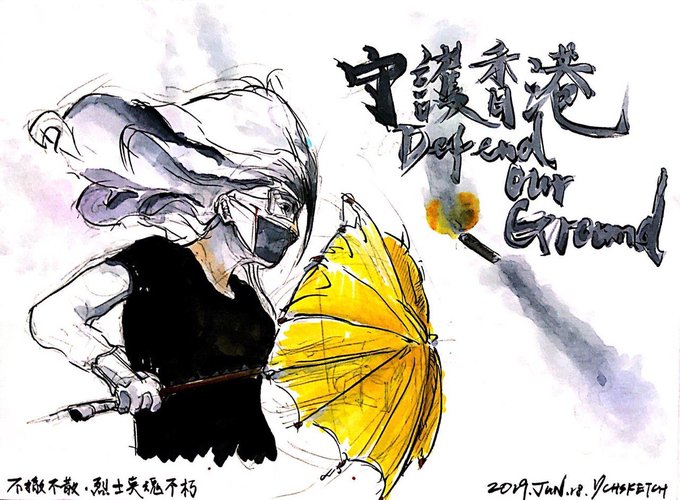 守護香港
Defend
Our
Ground
不撤不散·烈士英魂不朽
2019.JUN.18. YCHSKETCH